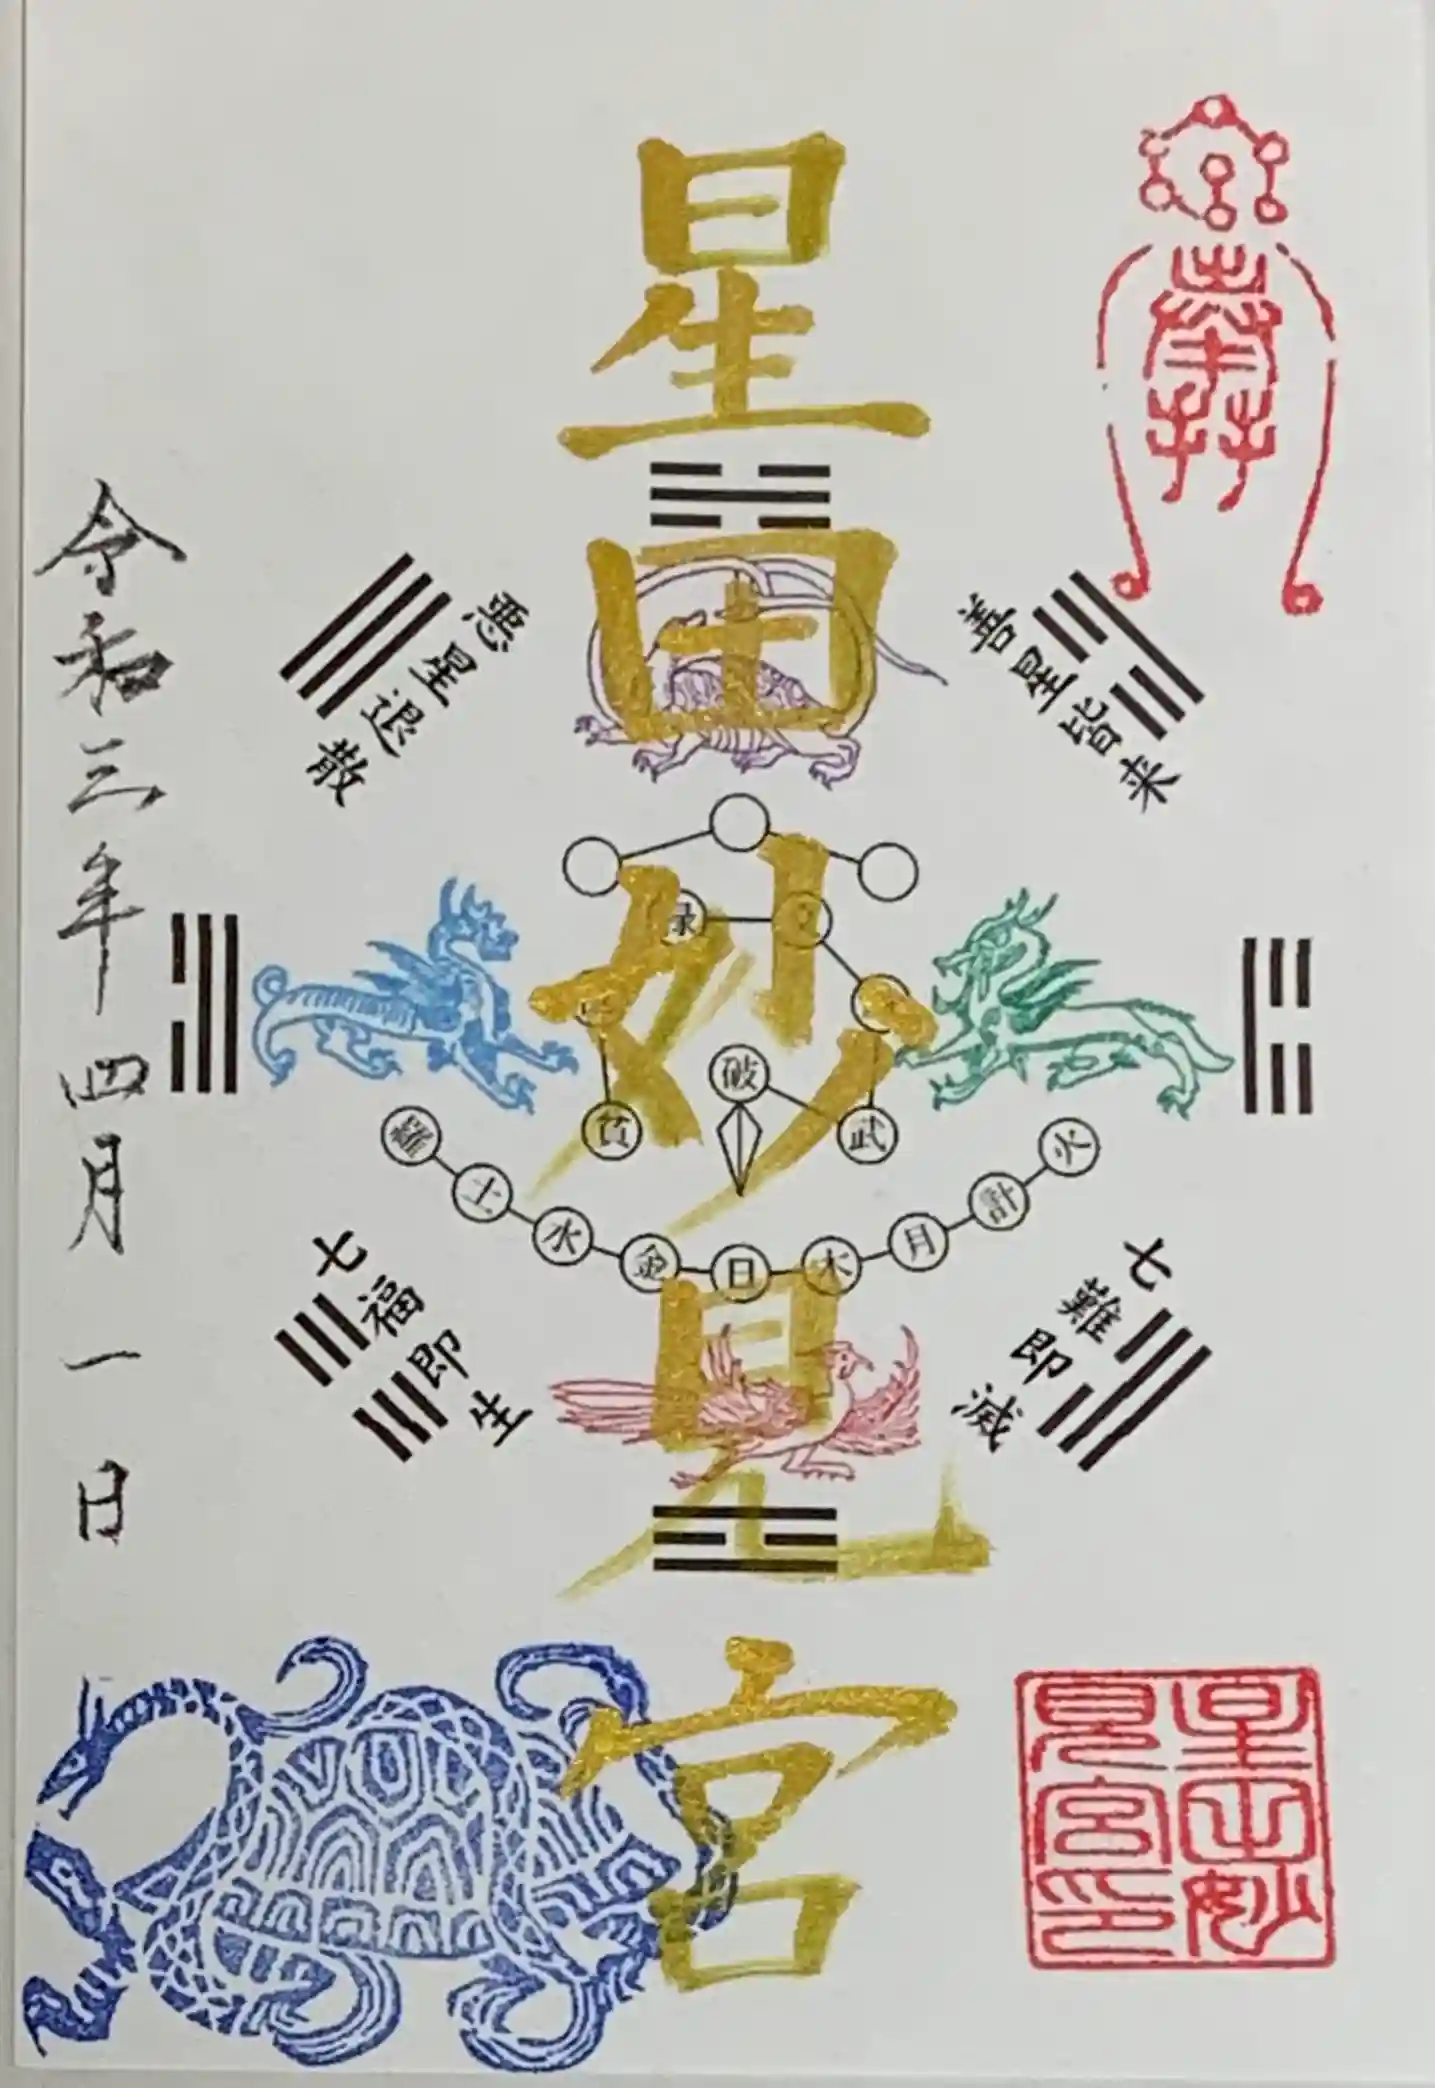 星田妙見宮
善星皆来
悪星退散
七難即滅
七福即生
禄
文
破
貧
武
羅 土 水 金 日 木 月 計 火
令和三年四月一日
星田妙
見宮印